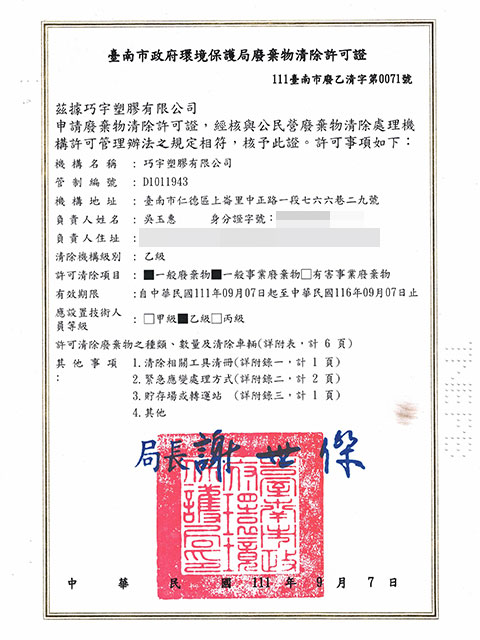 臺南市政府環境保護局廢棄物清除許可證
111臺南市廢乙清字第0071號
茲據巧宇塑膠有限公司
申請廢棄物清除許可證，經核與公民營廢棄物清除處理機
構許可管理辦法之規定相符，核予此證。許可事項如下：
機構名稱：巧宇塑膠有限公司
管制編號：D1011943
機構地址：臺南市仁德區上崙里中正路一段七六六巷二九號
負責人姓名：吳玉惠 身分證字號：
負責人住址：
清除機構級別：乙級
許可清除項目：■一般廢棄物■一般事業廢棄物□有害事業廢棄物
有效期限：自中華民國111年09月07日起至中華民國116年09月07日止
應設置技術人
員等級：□甲級■乙級□丙級
許可清除廢棄物之種類、數量及清除車輛(詳附表，計 6 頁)
其他事項 1.清除相關工具清冊(詳附錄一，計 1 頁)
： 2.緊急應變處理方式(詳附錄二，計 2 頁)
3.貯存場或轉運站 (詳附錄三，計 1 頁)
4.其他
局長謝世傑
臺南市政府環境保護局印
中華民國 111 年 9 月 7 日